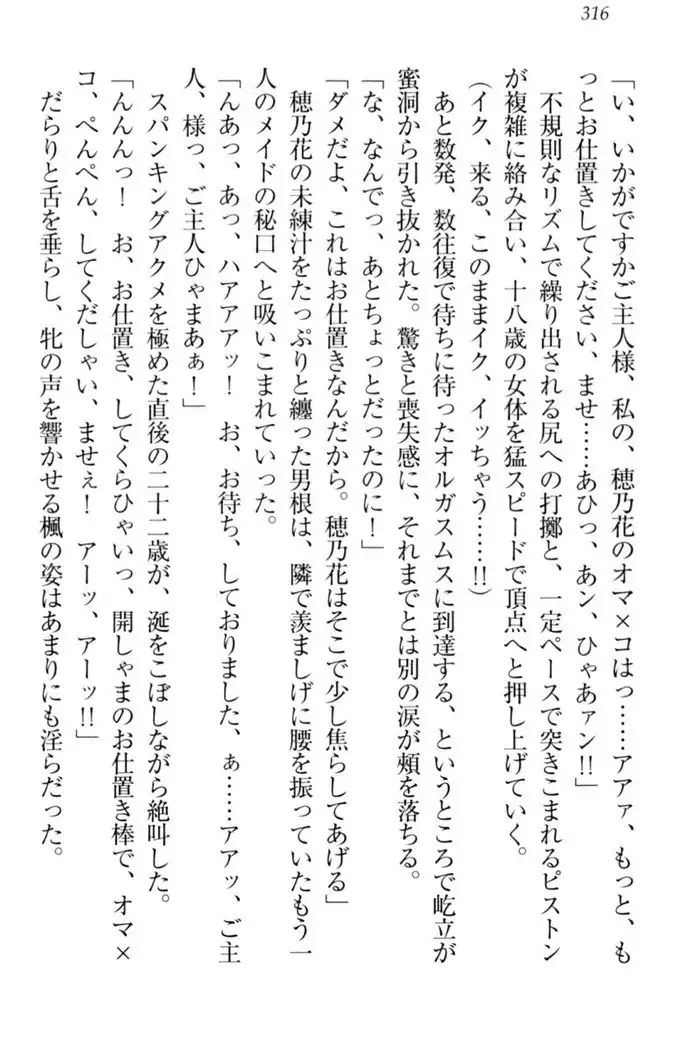 316
「い、いかがですかご主人様、私の、穂乃花のオマ×コはっ……アアァ、もっと、も
っとお仕置きしてください、ませ……あひっ、あン、ひゃあァン!!」
不規則なリズムで繰り出される尻への打擲と、一定ペースで突きこまれるピストン
が複雑に絡み合い、十八歳の女体を猛スピードで頂点へと押し上げていく。
(イク、来る、このままイク、イッちゃう……!!)
あと数発、数往復で待ちに待ったオルガスムスに到達する、というところで屹立が
蜜洞から引き抜かれた。驚きと喪失感に、それまでとは別の涙が頬を落ちる。
「な、なんでっ、あとちょっとだったのに!」
「ダメだよ、これはお仕置きなんだから。穂乃花はそこで少し焦らしてあげる」
穂乃花の未練汁をたっぷりと纏った男根は、隣で羨ましげに腰を振っていたもう一
人のメイドの秘口へと吸いこまれていった。
「んあっ、あっ、ハアアアッ! お、お待ち、しておりました、ぁ……アアッ、ご主
人、様っ、ご主人ひゃまあぁ!」
スパンキングアクメを極めた直後の二十二歳が、涎をこぼしながら絶叫した。
「んんんっ! お、お仕置き、してくらひゃいっ、開しゃまのお仕置き棒で、オマ×
コ、ぺんぺん、してくだしゃい、ませぇ! アーッ、アーッ!!」
だらりと舌を垂らし、牝の声を響かせる楓の姿はあまりにも淫らだった。